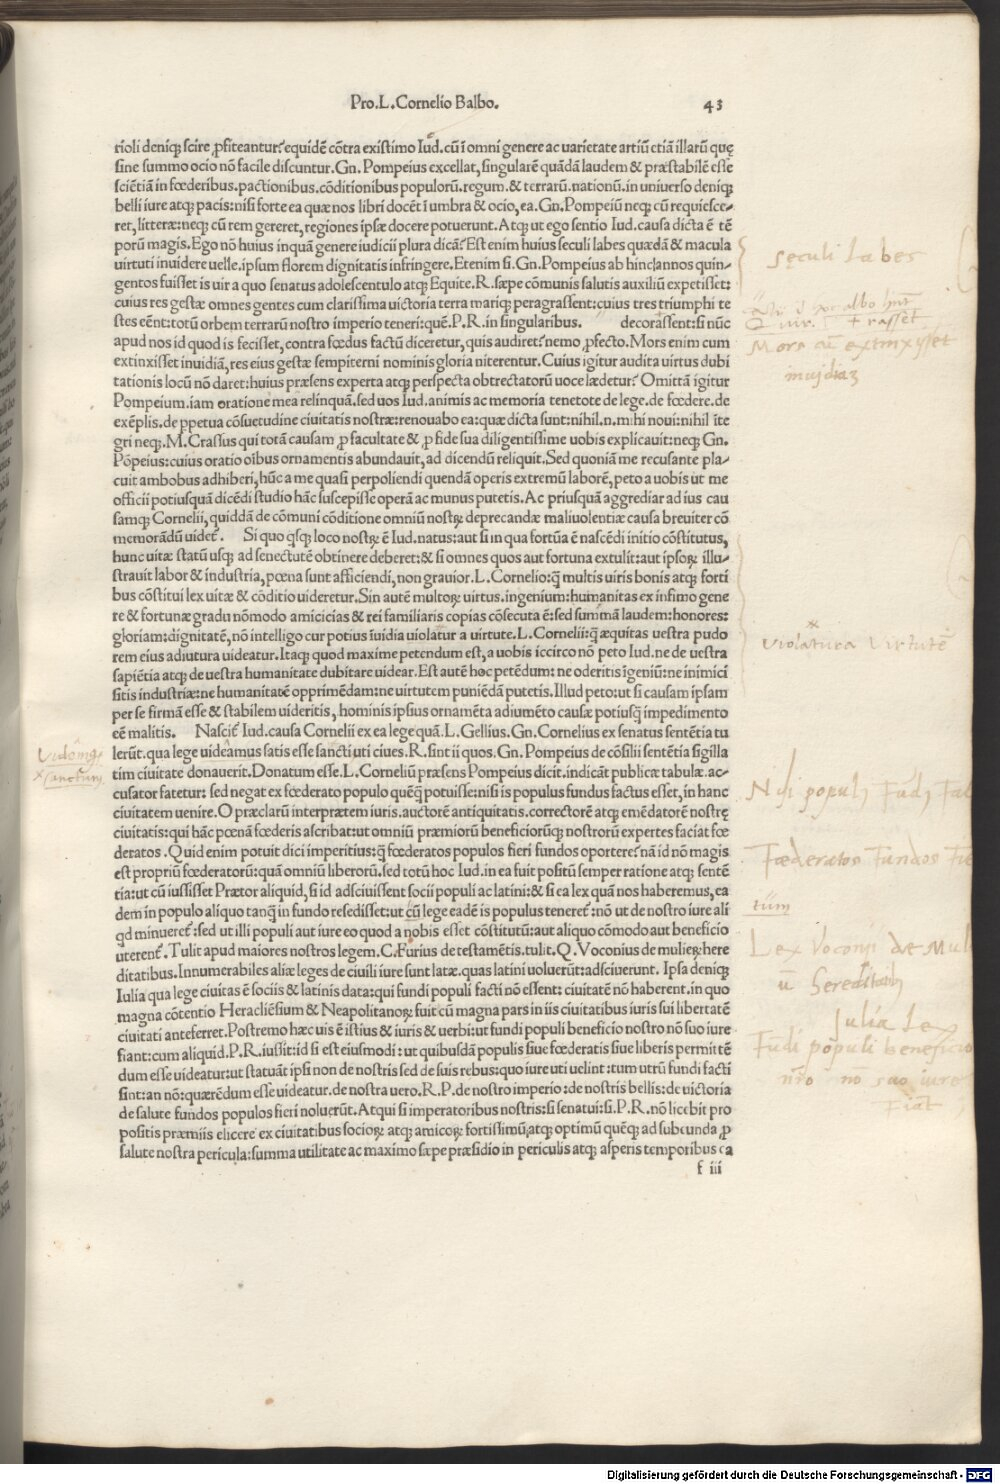 Pro.L.Cornelio Balbo. 43
rioli deniqꝫ scire ꝓfiteantur? equidē cōtra existimo Iud.cū ī omni genere ac uarietate artiū etiā illarū quę
sine summo ocio nō facile discuntur.Gn.Pompeius excellat,singularē quādā laudem & præstabilē esse
sciētiā in fœderibus.pactionibus.cōditionibus populorū.regum.& terrarū.nationū.in uniuerso deniqꝫ
belli iure atqꝫ pacis:nisi forte ea quæ nos libri docēt ī umbra & ocio,ea.Gn.Pompeiū neqꝫ cū requiesce-
ret,litteræ:neqꝫ cū rem gereret,regiones ipsæ docere potuerunt.Atqꝫ ut ego sentio Iud.causa dicta ē tē
porū magis.Ego nō huius inquā genere iudicii plura dicā? Est enim huius seculi labes quædā & macula
uirtuti inuidere uelle.ipsum florem dignitatis infringere.Etenim si.Gn.Pompeius ab hinc annos quin-
gentos fuisset is uir a quo senatus adolescentulo atqꝫ Equite.R.sæpe cōmunis salutis auxiliū expetisset:
cuius res gestæ omnes gentes cum clarissima uictoria terra mariqꝫ peragrassent:cuius tres triumphi te
stes eēnt:totū orbem terrarū nostro imperio teneri:quē.P.R.in singularibus. decorassent:si nūc
apud nos id quod is fecisset,contra fœdus factū diceretur,quis audiret? nemo ꝓfecto.Mors enim cum
extinxisset inuidiā,res eius gestæ sempiterni nominis gloria niterentur.Cuius igitur audita uirtus dubi
tationis locū nō daret:huius præsens experta atqꝫ perspecta obtrectatorū uoce lædetur? Omittā igitur
Pompeium.iam oratione mea relinquā.sed uos Iud.animis ac memoria tenetote de lege.de fœdere.de
exēplis.de ꝑpetua cōsuetudine ciuitatis nostræ:renouabo ea:quæ dicta sunt:nihil.n.mihi noui:nihil īte
gri neqꝫ.M.Crassius qui totā causam ꝓ facultate & ꝓ fide sua diligentissime uobis explicauit:neqꝫ Gn.
Pōpeius:cuius oratio oībus ornamentis abundauit,ad dicendū reliquit.Sed quoniā me recusante pla-
cuit ambobus adhiberi,hūc a me quasi perpoliendi quendā operis extremū laborē,peto a uobis ut me
officii potiusquā dicēdi studio hāc suscepisse operā ac munus putetis.Ac priusquā aggrediar ad ius cau
samqꝫ Cornelii,quiddā de cōmuni cōditione omniū nostrꝝ deprecandæ maliuolentiæ causa breuiter cō
memorādū uideť. Si quo qsqꝫ loco nostrꝝ ē Iud.natus:aut si in qua fortūa ē nascēdi initio cōstitutus,
hunc uitæ statū usqꝫ ad senectutē obtinere deberet:& si omnes quos aut fortuna extulit:aut ipsorꝝ illu-
strauit labor & industria,pœna sunt afficiendi,non grauior.L.Cornelio:q̄ multis uiris bonis atqꝫ forti
bus cōstitui lex uitæ & cōditio uideretur.Sin autē multorꝝ uirtus.ingenium:humanitas ex infimo gene
re & fortunæ gradu nōmodo amicicias & rei familiaris copias cōsecuta ē:sed summā laudem:honores:
gloriam:dignitatē,nō intelligo cur potius īuidia uiolatur a uirtute.L.Cornelii:q̄ æquitas uestra pudo
rem eius adiutura uideatur.Itaqꝫ quod maxime petendum est,a uobis iccirco nō peto Iud.ne de uestra
sapiētia atqꝫ de uestra humanitate dubitare uidear.Est autē hoc petēdum:ne oderitis īgeniū:ne inimici
sitis industriæ:ne humanitatē opprimēdam:ne uirtutem puniēdā putetis.Illud peto:ut si causam ipsam
per se firmā esse & stabilem uideritis,hominis ipsius ornamēta adiumēto causæ potiusq̄ impedimento
eē malitis. Nasciť Iud.causa Cornelii ex ea lege quā.L.Gellius.Gn.Cornelius ex senatus sentētia tu
lerūt.qua lege uideamus satis esse sancti uti ciues.R.sint ii quos.Gn.Pompeius de cōsilii sentētia sigilla
tim ciuitate donauerit.Donatum esse.L.Corneliū præsens Pompeius dicit.indicāt publicæ tabulæ.ac-
cusator fatetur:sed negat ex fœderato populo quēq̄ potuisse:nisi is populus fundus factus esset,in hanc
ciuitatem uenire.O præclarū interprætem iuris.auctorē antiquitatis.correctorē atqꝫ emēdatorē nostrę
ciuitatis:qui hāc pœnā fœderis ascribat:ut omniū præmiorū beneficiorūqꝫ nostrorū expertes faciat fœ
deratos.Quid enim potuit dici imperitius:q̄ fœderatos populos fieri fundos oportere? nā id nō magis
est propriū fœderatorū:quā omniū liberorū.sed totū hoc Iud.in ea fuit positū semper ratione atqꝫ sentē
tia:ut cū iussisset Prætor aliquid,si id adsciuissent socii populi ac latini:& si ea lex quā nos haberemus,ea
dem in populo aliquo tanq̄ in fundo resedisset:ut cū lege eadē is populus teneretť:nō ut de nostro iure ali
qd minueretť:sed ut illi populi aut iure eo quod a nobis esset cōstitutū:aut aliquo cōmodo aut beneficio
uterenť.Tulit apud maiores nostros legem.C.Furius de testamētis.tulit.Q.Voconius de mulierꝝ here
ditatibus.Innumerabiles aliæ leges de ciuili iure sunt latæ.quas latini uoluerūt:adsciuerunt. Ipsa deniqꝫ
Iulia qua lege ciuitas ē sociis & latinis data:qui fundi populi facti nō essent:ciuitatē nō haberent.in quo
magna cōtentio Heracliēsium & Neapolitanorꝝ fuit cū magna pars in iis ciuitatibus iuris sui libertatē
ciuitati anteferret.Postremo hæc uis ē istius & iuris & uerbi:ut fundi populi beneficio nostro nō suo iure
fiant:cum aliquid.P.R.iussit:id si est eiusmodi:ut quibusdā populis siue fœderatis siue liberis permittē
dum esse uideatur:ut statuāt ipsi non de nostris sed de suis rebus:quo iure uti uelint:tum utrū fundi facti
sint:an nō:quærēdum esse uideatur.de nostra uero.R.P.de nostro imperio:de nostris bellis:de uictoria
de salute fundos populos fieri noluerūt.Atqui si imperatoribus nostris:si senatui:si.P.R.nō licebit pro
positis præmiis elicere ex ciuitatibus sociorꝝ atqꝫ amicorꝝ fortissimū,atqꝫ optimū quēqꝫ ad subeunda ꝓ
salute nostra pericula:summa utilitate ac maximo sæpe præsidio in periculis atqꝫ asperis temporibus ca
f iii
sęculi Labes
Mors cū extinxisset
inuidiaz
violatura virtutē
sanctum
Nisi populꝰ Fūdꝰ
Fœderatos Fundos
tium
Lex Voconij de Mul
Hereditatib
Julia Lex
Fūdi populi beneficio
nr̄o nō suo iure
Fiāt
Digitalisierung gefördert durch die Deutsche Forschungsgemeinschaft - DFG